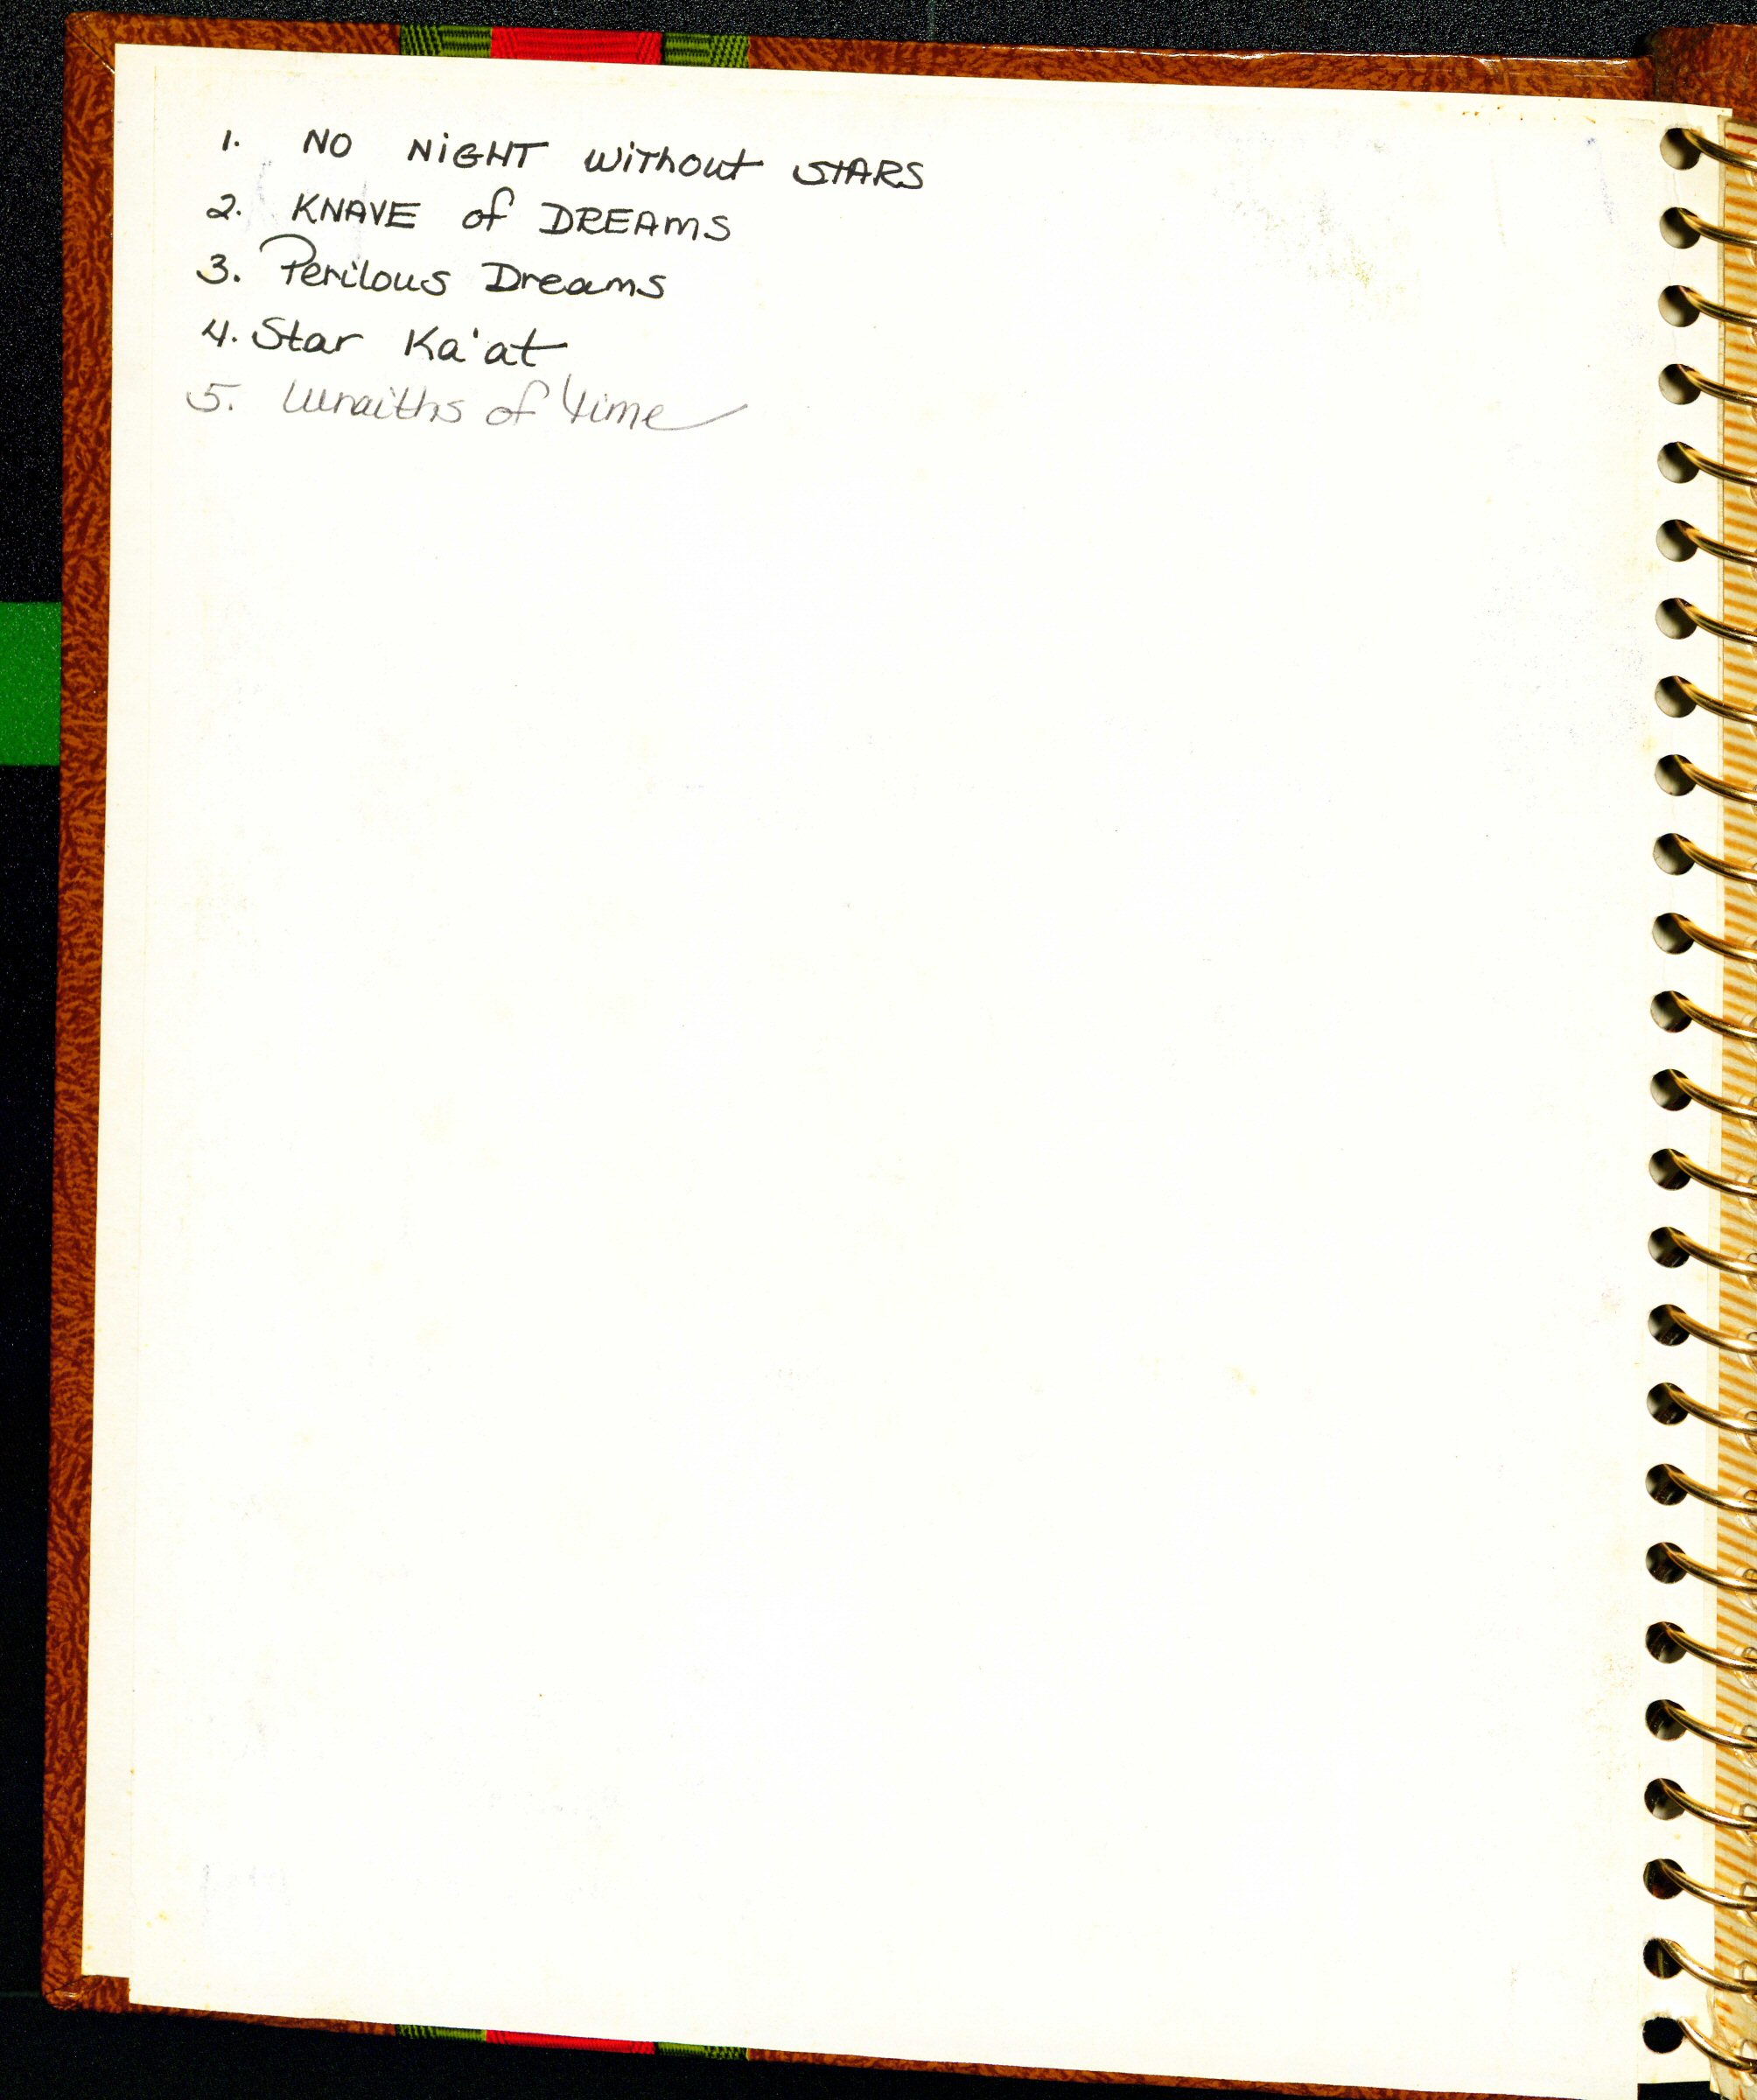 1. NO NiGHT WiThout STARS
2. KNAVE of DREAMS
3. Perilous Dreams
4. Star Ka'at
5. Wraiths of Time